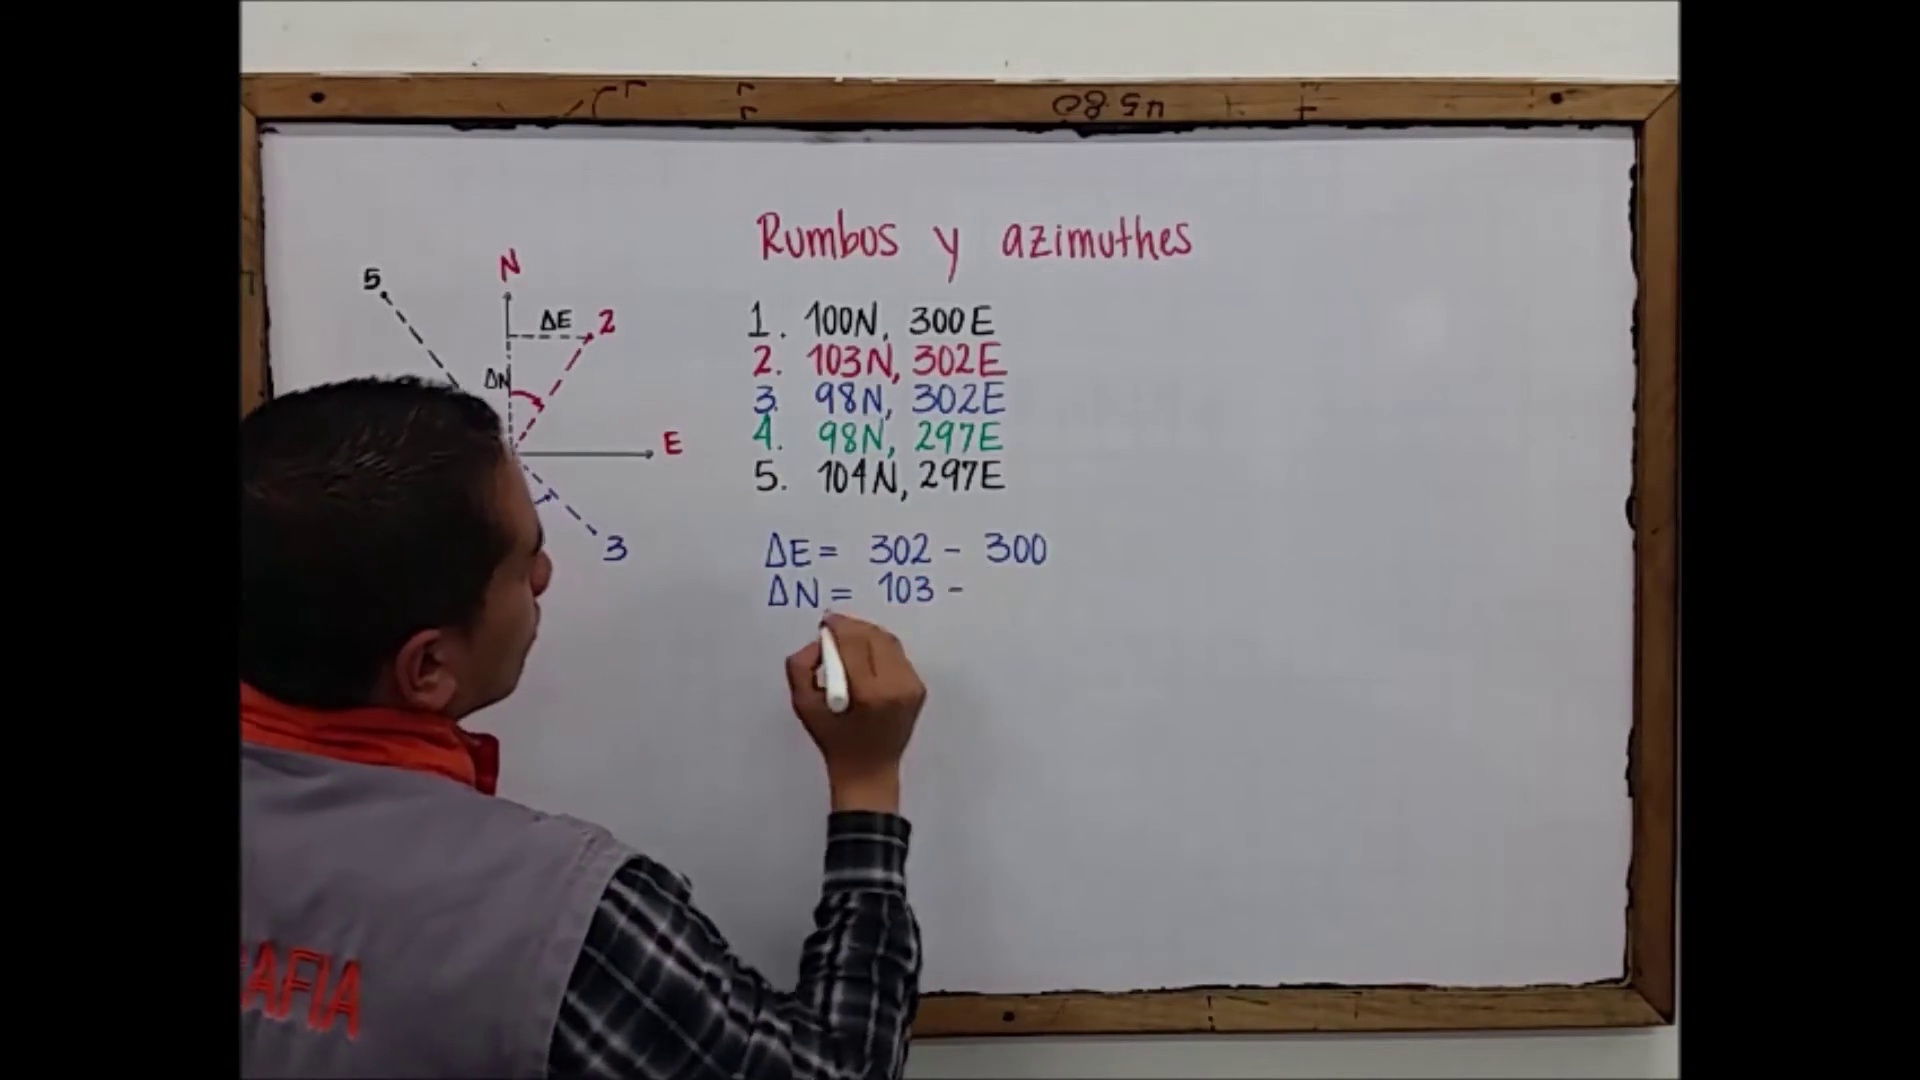 Rumbos y azimuthes
N
5
ΔE 2
ΔN
E
3
1. 100N, 300E
2. 103N, 302E
3. 98N, 302E
4. 98N, 297E
5. 104N, 297E
ΔE = 302 - 300
ΔN = 103 -
AFIA